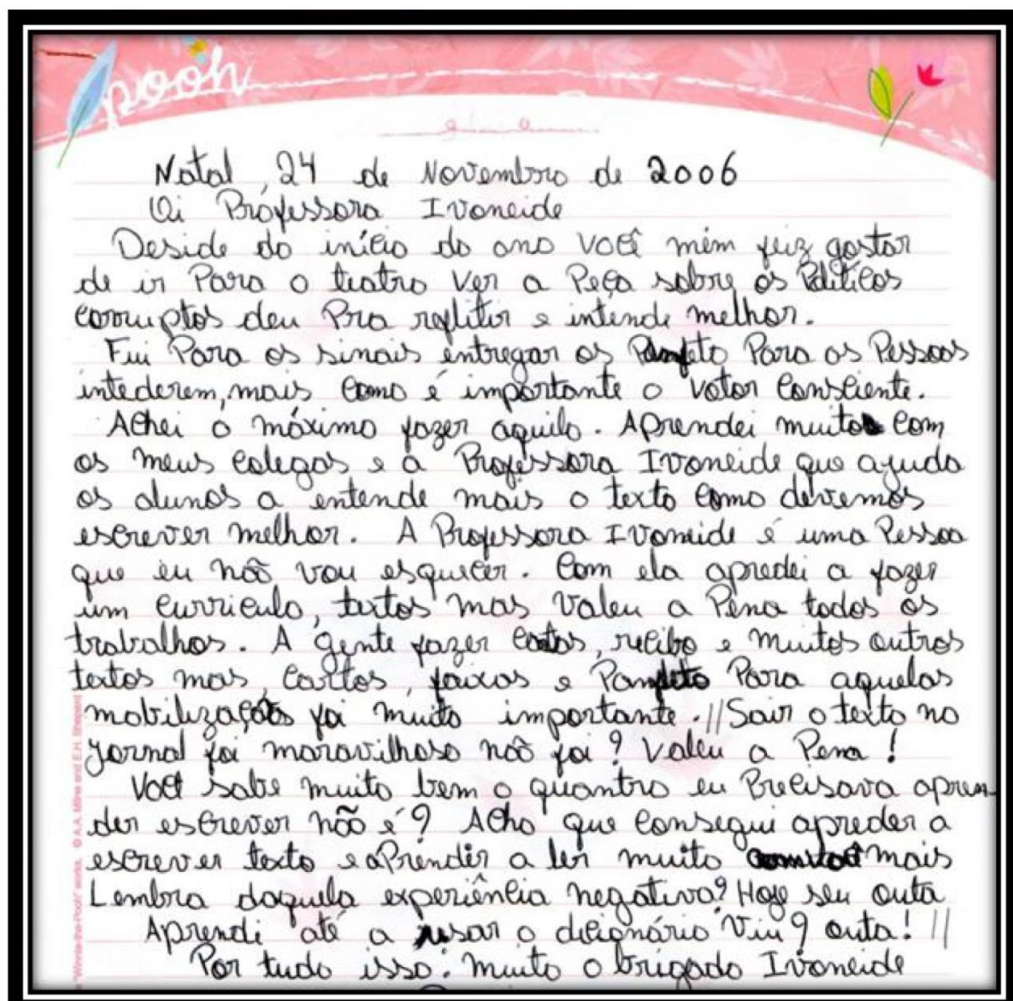 pooh
Natal, 24 de Novembro de 2006
Oi Professora Ivoneide
Deside do início do ano você mim feiz gostar
de ir Para o teatro Ver a Peça sobre os Políticos
corruptos deu Pra reflitir e intende melhor.
Fui Para os sinais entregar os Panfeto Para os Pessoas
intederem, mais como é importante o votor Consciente.
Achei o máximo fazer aquilo. Aprendei muito com
os meus colegas e a Professora Ivoneide que ajuda
os alunos a entende mais o texto como devemos
escrever melhor. A Professora Ivoneide é uma Pessoa
que eu não vou esquecer. Com ela apredei a fazer
um curriculo, textos mas Valeu a Pena todos os
trabalhos. A gente fazer cartas, recibo e muitos outros
textos mas, cartas, faixas e Panfeto Para aquelas
mobilizações foi muito importante. // Sair o texto no
Jornal foi maravilhoso não foi? Valeu a Pena!
Você sabe muito bem o quantro eu Precisava apren
der escrever não é? Acho que consegui apreder a
escrever texto e aPrender a ler muito mais
Lembra daquela experiência negativa? Hoje seu outa
Aprendi até a usar o dicionário Viu? outa! //
Por tudo isso: muito obrigado Ivoneide
"Winnie-the-Pooh" works. © A.A. Milne and E.H. Shepard